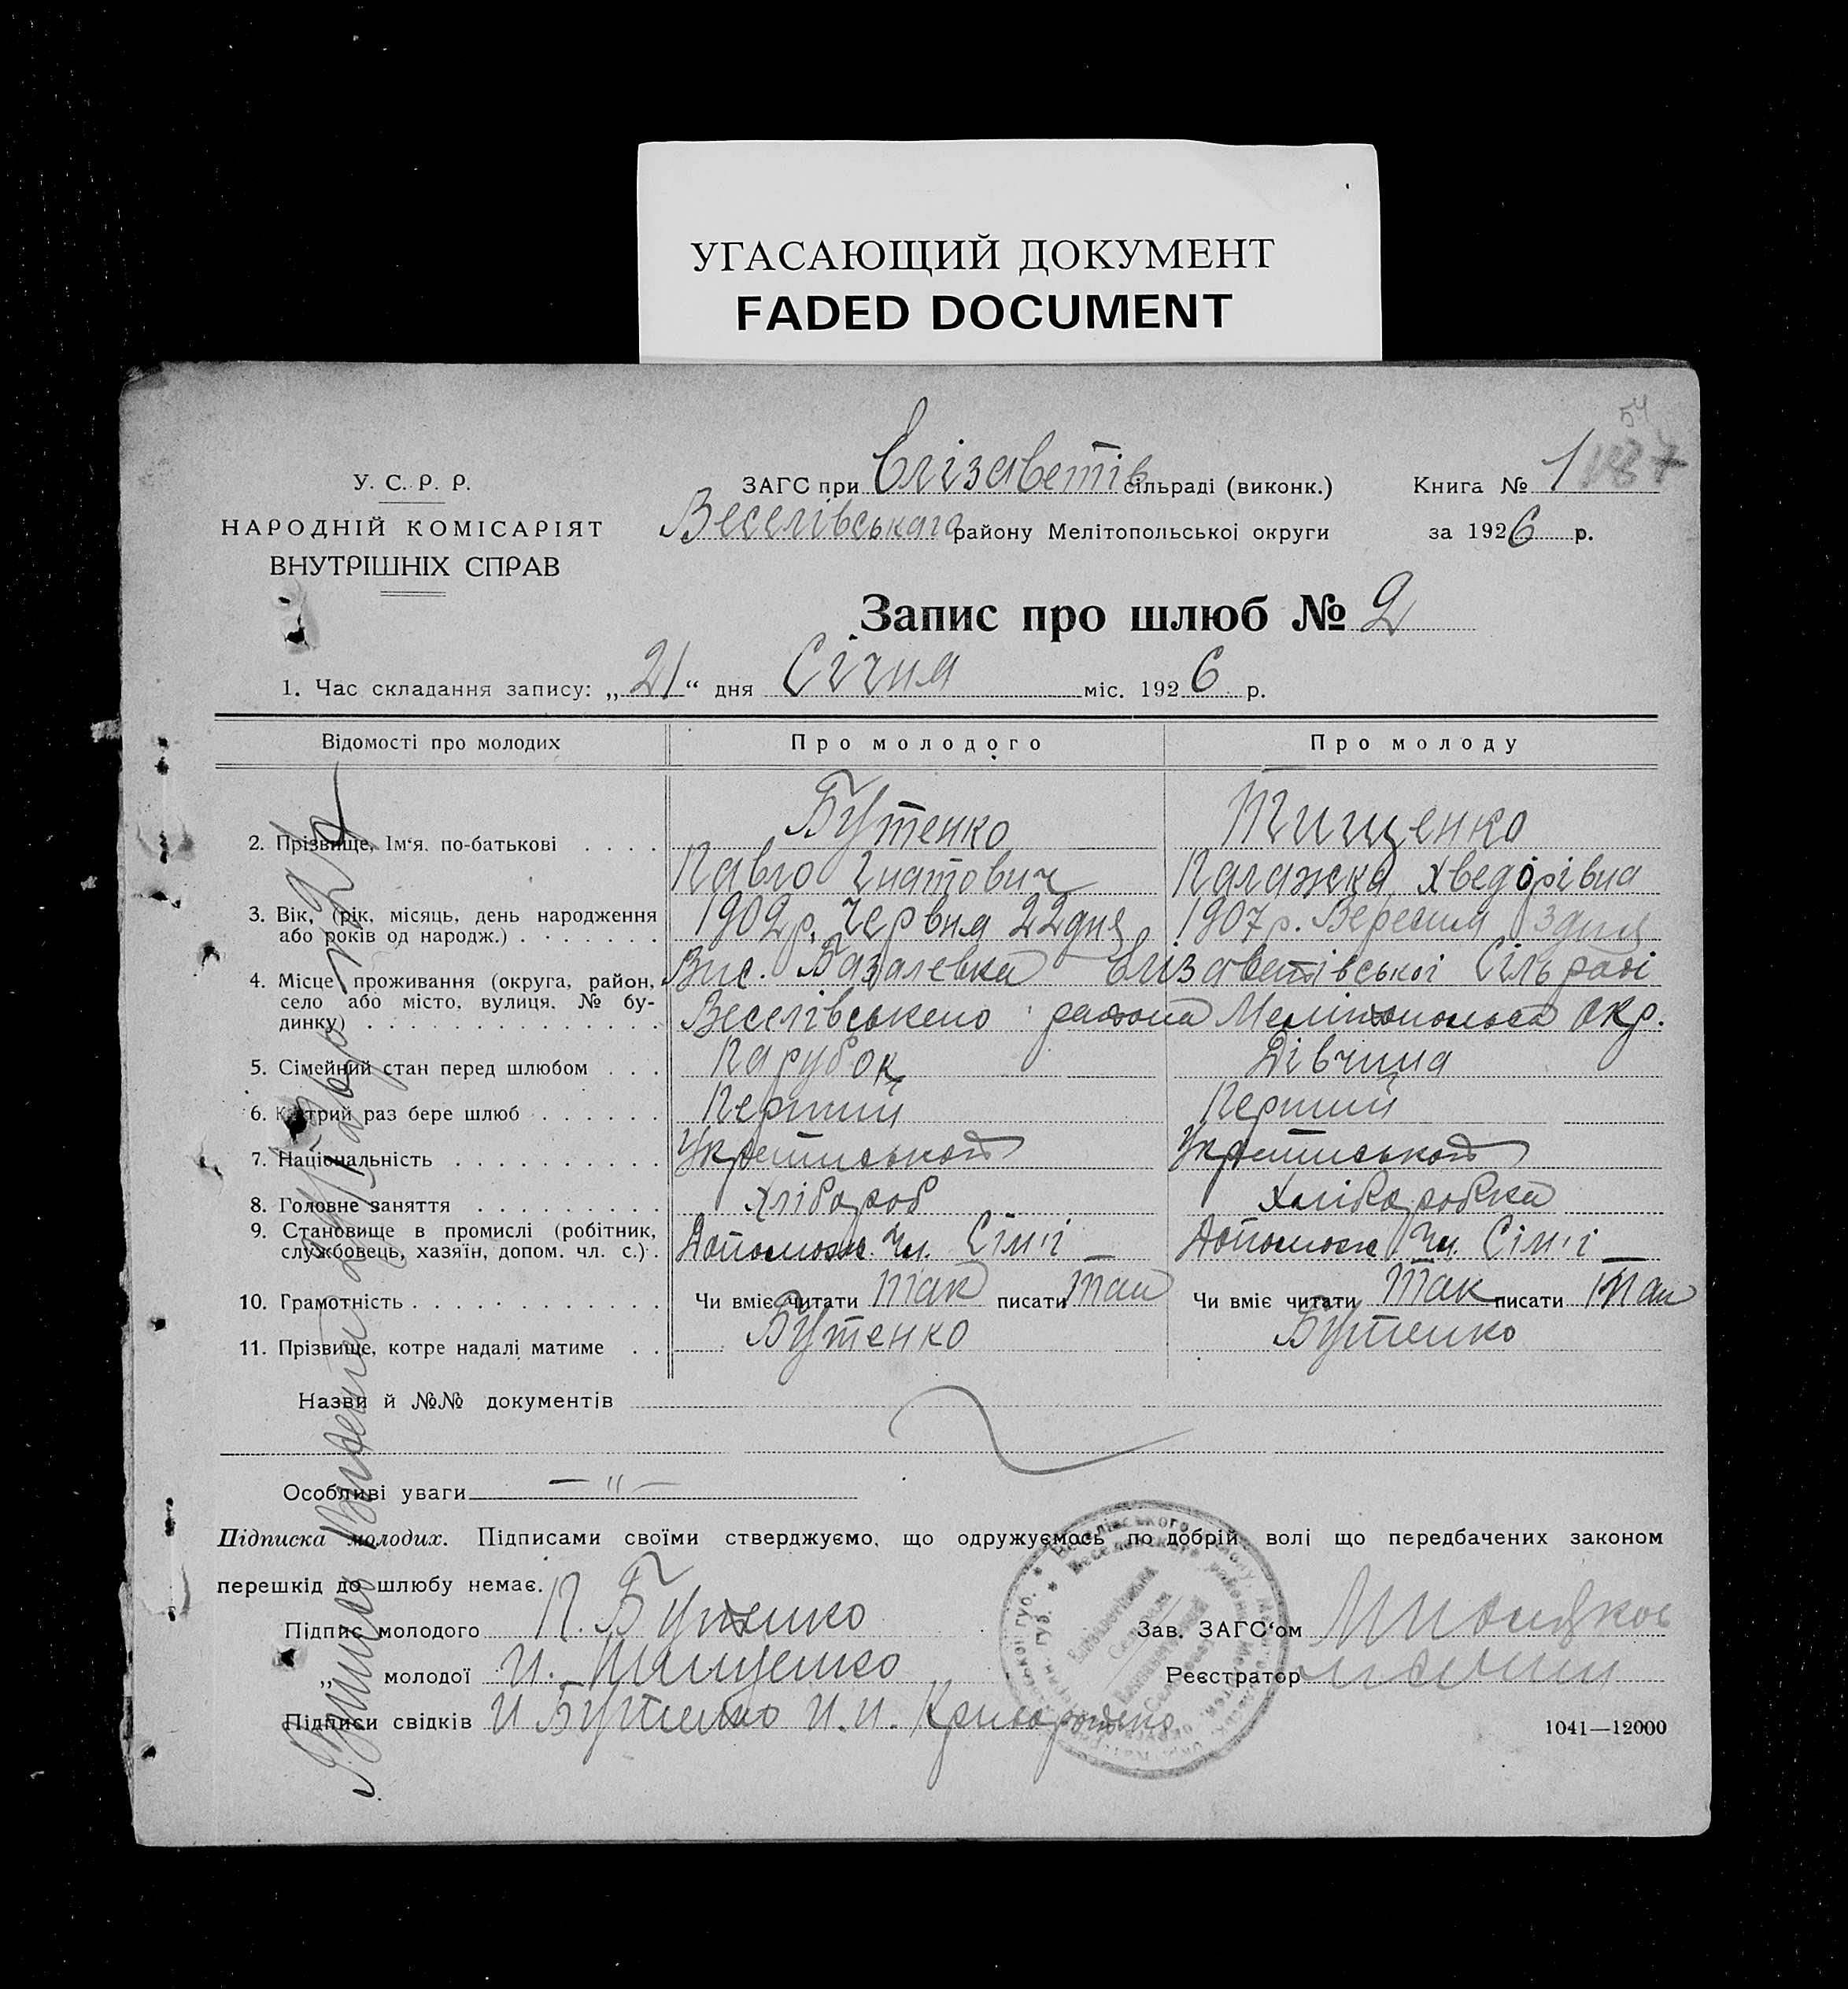 УГАСАЮЩИЙ ДОКУМЕНТ
FADED DOCUMENT
54
У. С. Р. Р.
НАРОДНІЙ КОМІСАРІЯТ
ВНУТРІШНІХ СПРАВ
ЗАГС при Єлізаветів сільраді (виконк.)
Веселівського району Мелітопольської округи
Книга № 1
за 1926 р.
Запис про шлюб № 2
1. Час складання запису: „21“ дня Січня міс. 1926 р.
Відомості про молодих Про молодого Про молоду
2. Прізвище, Ім'я, по-батькові Бутенко Тищенко
Павло Гнатович Палажка Хведорівна
3. Вік, (рік, місяць, день народження або років од народж.) 1902 р. Червня 22 дня 1907 р. Вересня 3 дня
4. Місце проживання (округа, район, село або місто, вулиця, № будинку) Вис. Базалевка Єлізаветівської Сільраді
Веселівського района Мелітопольск Окр.
5. Сімейний стан перед шлюбом Парубок Дівчина
6. Котрий раз бере шлюб Перший Перший
7. Національність
8. Головне заняття Хлібороб Хліборобка
9. Становище в промислі (робітник, службовець, хазяїн, допом. чл. с.) Допомож. Чл. Сім'ї Допомож. Чл. Сім'ї
10. Грамотність Чи вміє читати так писати так Чи вміє читати так писати так
11. Прізвище, котре надалі матиме Бутенко Бутенко
Назви й №№ документів
Особливі уваги — „ —
Підписка молодих. Підписами своїми стверджуємо, що одружуємось по добрій волі що передбачених законом
перешкід до шлюбу немає.
Підпис молодого П. Бутенко
„ молодої П. Тищенко
Підписи свідків И Бутенко И. И.
Зав. ЗАГС'ом
Реєстратор
1041—12000